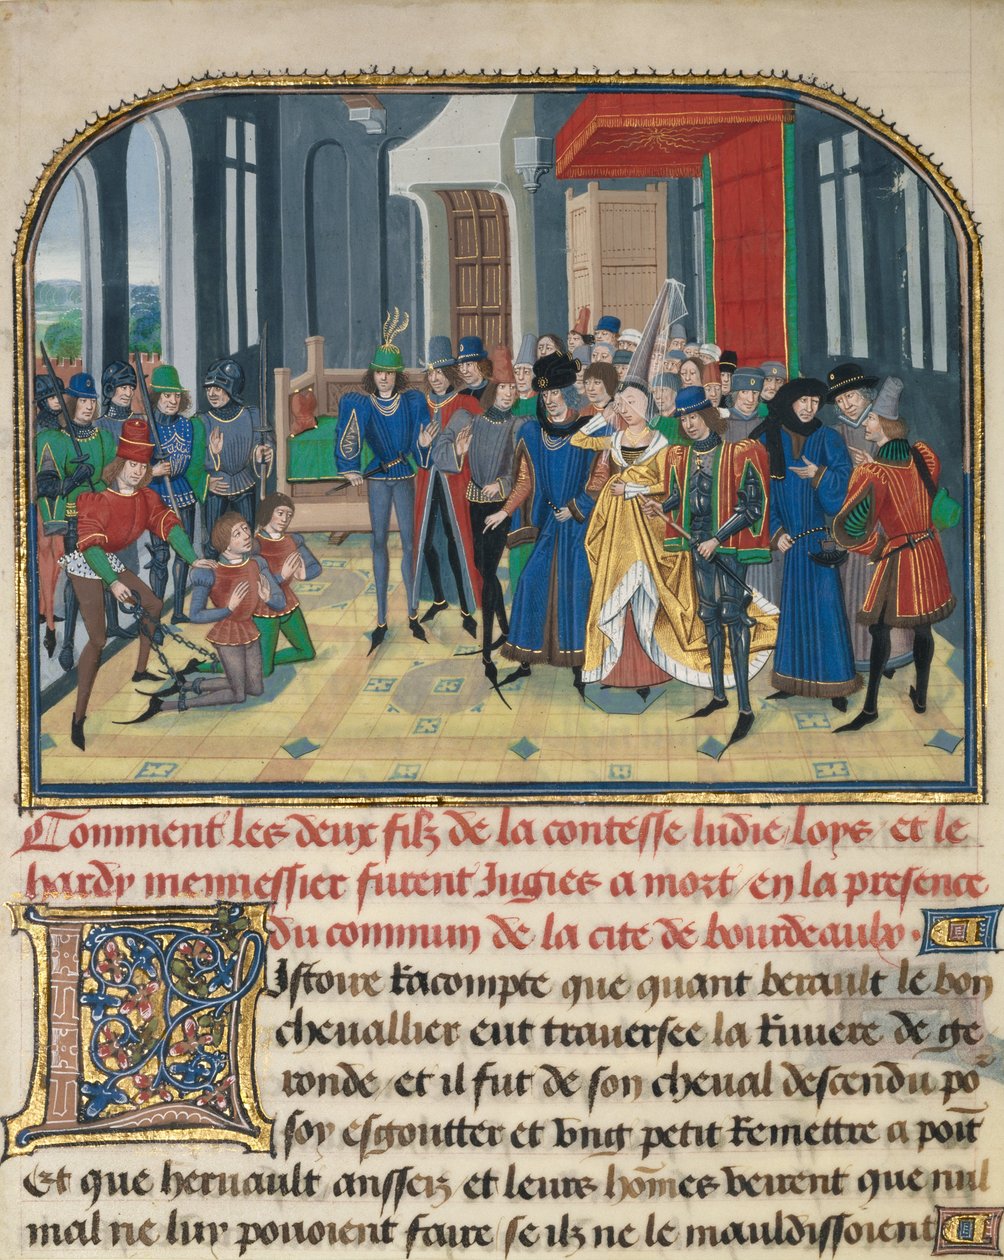 Comment les deux filz de la contesse ludie loys et le
hardy mennessier furent Jugies a mort / en la presence
du commun de la cite de bourdeaulx.
Listoire Racompte que quant berault le bon
chevallier eut traversee la Riviere de ge
ronde / et il fut de son cheval descendu po
soy esgoutter et ung petit Remettre a poĩt
Et que hernault ansseiz et leurs hõmes veirent que nul
mal ne luy povoient faire / se ilz ne le mauldissoient